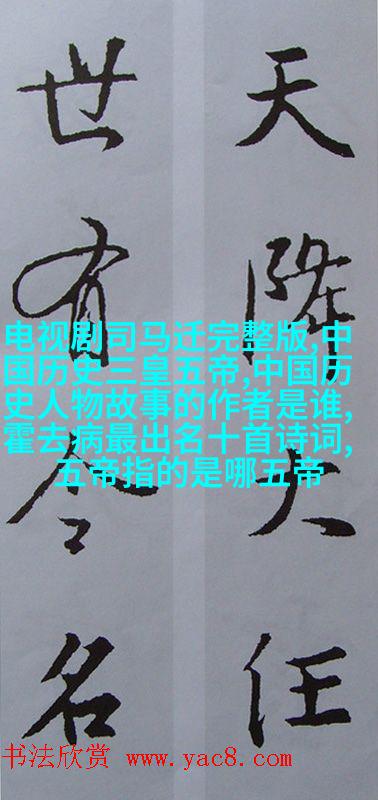 天降大任
世有令名
电视剧司马迁完整版,中
国历史三皇五帝,中国历
史人物故事的作者是谁,
霍去病最出名十首诗词,
五帝指的是哪五帝
书法欣赏 www.yac8.com